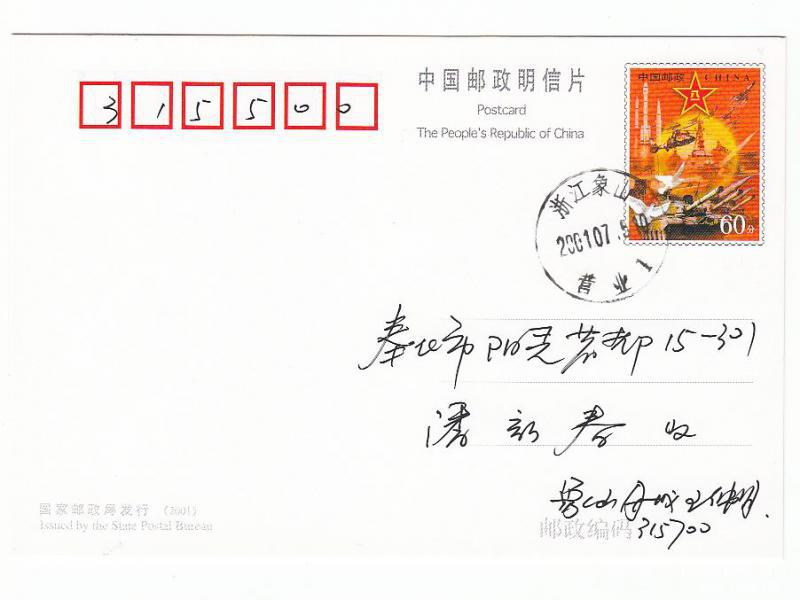 中国邮政明信片
Postcard
The People's Republic of China
中国邮政 CHINA
八一
60分
315500
浙江象山
200107.
营业1
奉化市阳光茗都15-301
潘新春 收
象山丹城王仲明
邮政编码 315700
国家邮政局发行 (2001)
Issued by the State Postal Bureau